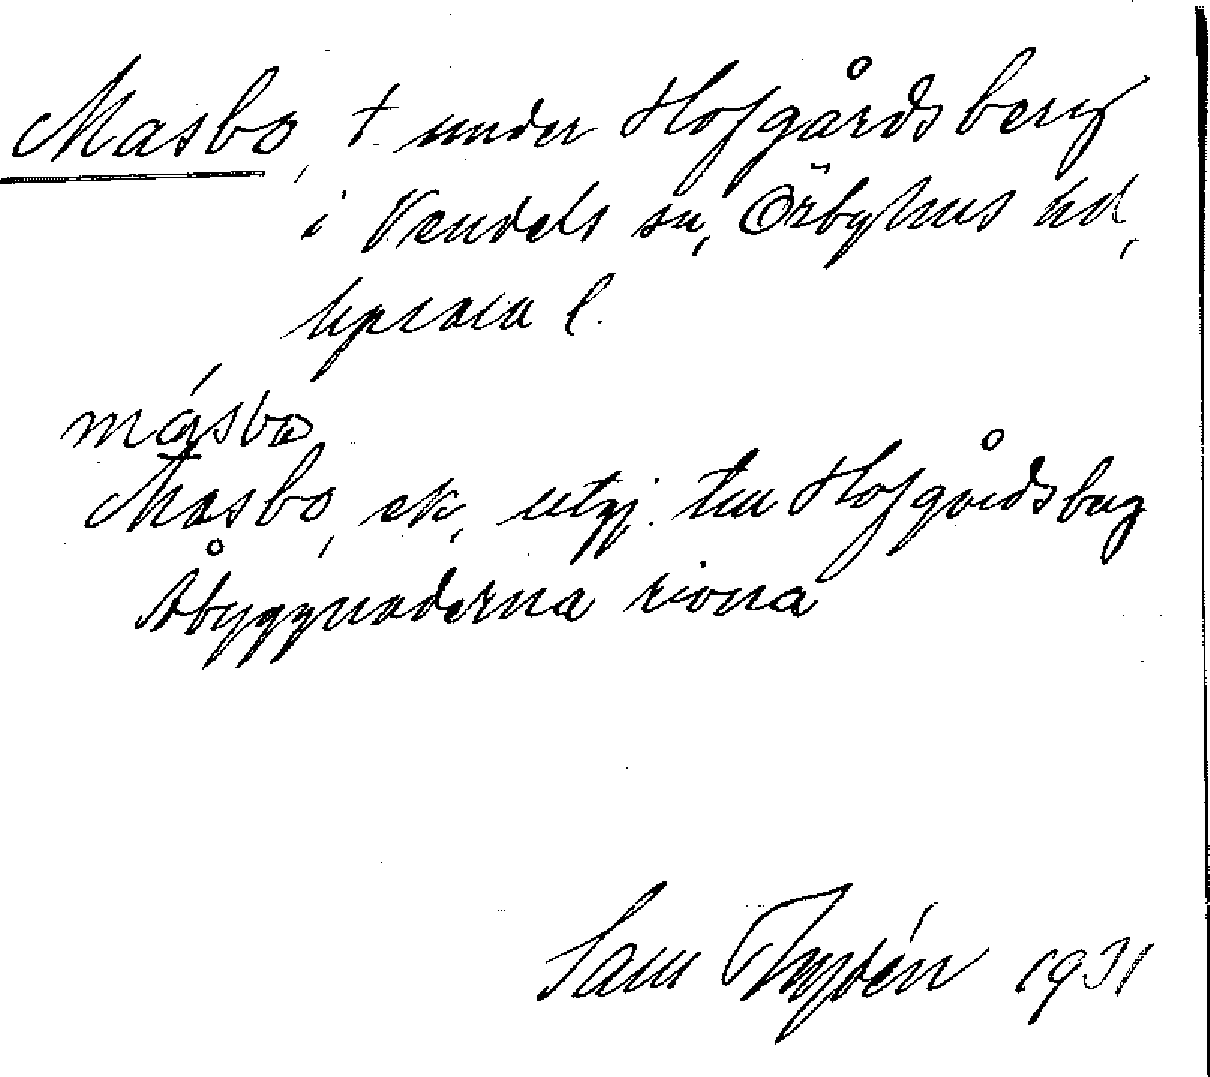 Masbo, † under Hofgårdsberg
i Vendels sn, Örbyhus hd,
Uppsala l.
måsbo
Masbo, utgj. till Hofgårdsberg
Åbyggnaderna rivna
Sam 1931